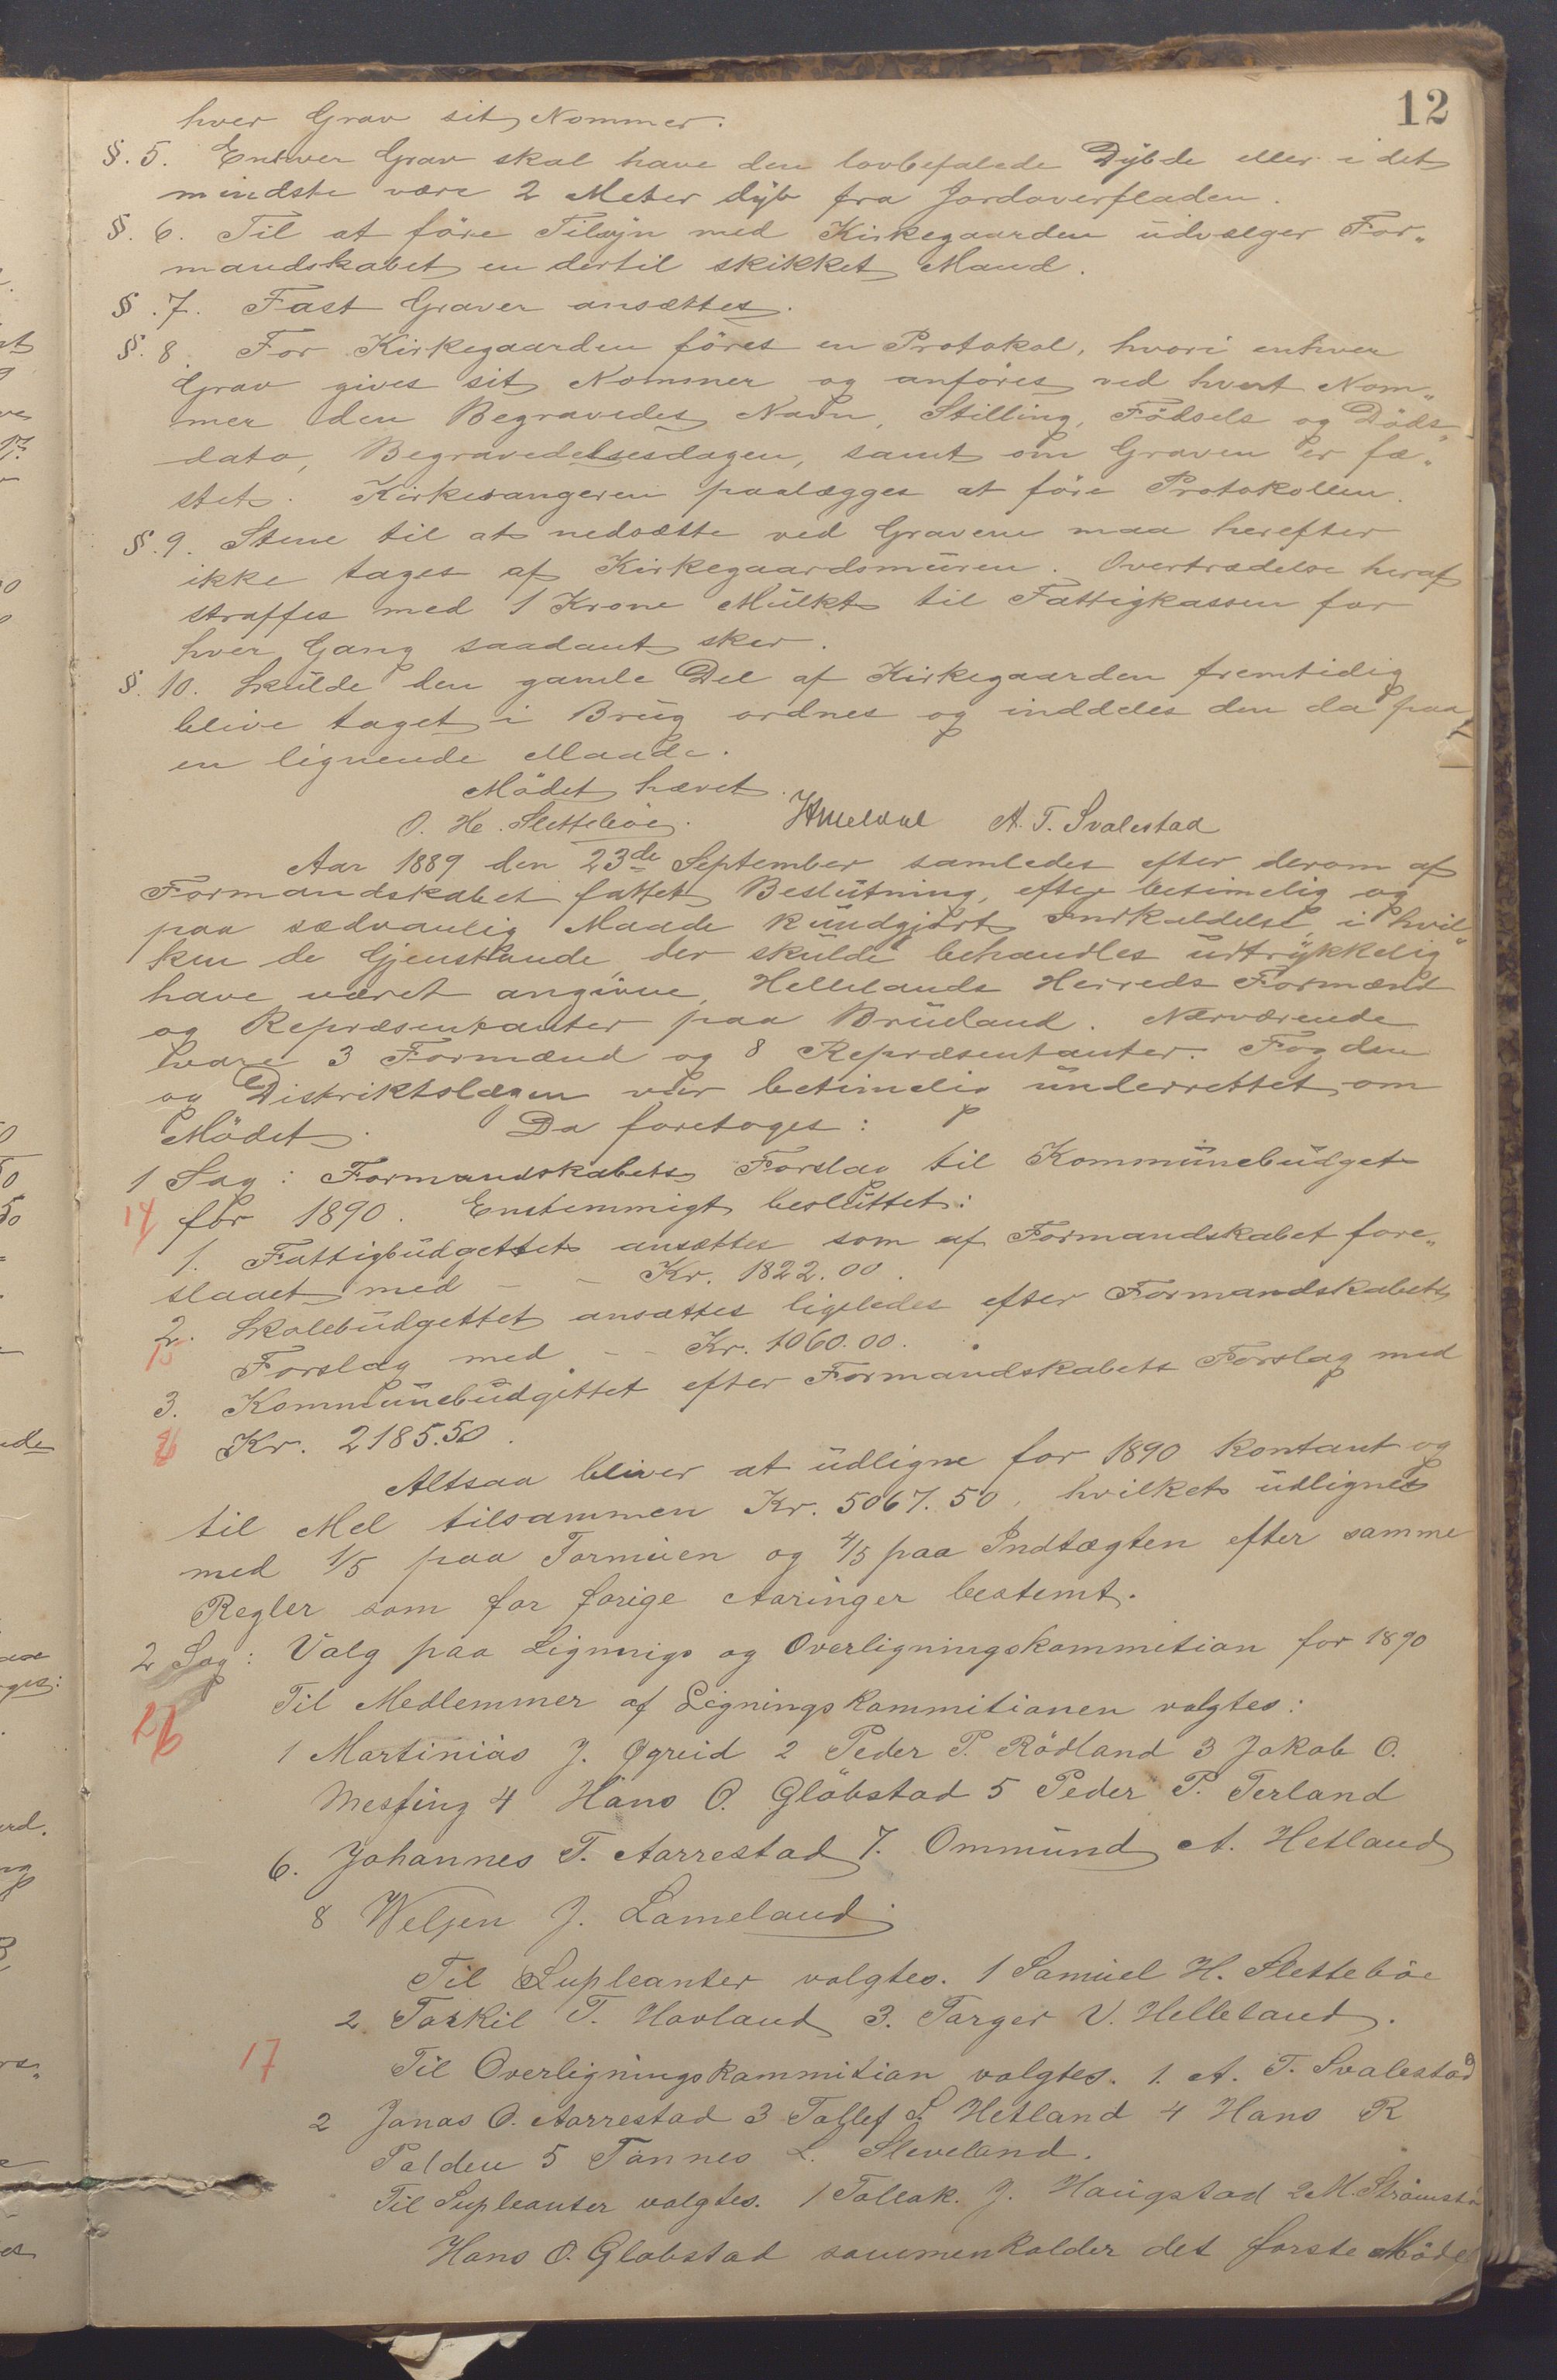 12
hver Grav sit Nommer.
§. 5. Enhver Grav skal have den lovbefalede Dÿbde eller i det
mindste være 2 Meter dÿb fra Jordoverfladen.
§. 6. Til at före Tilsÿn med Kirkegaarden üdvælger For„
mandskabet en dertil skikket Mand.
§. 7. Fast Graver ansættes.
§. 8. For Kirkegaarden föres en Protokol, hvori enhver
Grav gives sit Nommer og anföres ved hvert Nom„
mer den Begravedes Navn, Stilling, Födsels og Döds„
dato, Begravedelsesdagen, samt om Graven er fæ„
stet. Kirkesangeren paalægges at före Protokollen.
§. 9. Stene til at nedsætte ved Gravene maa herefter
ikke tages af Kirkegaardsmüren. Overtrædelse heraf
straffes med 1 Krone Mülkt til Fattigkassen for
hver Gang saadant sker.
§. 10. Skülde den gamle Del af Kirkegaarden fremtidig
blive taget i Brüg ordnes og inddeles den da paa
en lignende Maade.
Mödet hævet.
O. H. Sletteböe. A. T. Svalestad
Aar 1889 den 23de September samledes efter derom af
Formandskabet fattet Beslütning, efter betimelig og
paa sædvanlig Maade kündgjört Indkaldelse i hvil„
ken de Gjenstande der skülde behandles üdtrÿkkelig
have været angivne, Hellelands Herreds Formænd
og Repræsentanter paa Brüeland. Nærværende
vare 3 Formænd og 8 Repræsentanter. Fogden
og Distriktslægen var betimelig ünderrettet om
Mödet. Da foretoges:
1 Sag: Formandskabets Forslag til Kommünebüdget
14 for 1890. Enstemmigt beslüttet:
1. Fattigbüdgettet ansættes som af Formandskabet fore„
slaaet med - - Kr. 1822.00.
2. Skolebüdgettet ansættes ligeledes efter Formandskabets
15 Forslag med - - Kr. 1060.00.
3. Kommünebüdgettet efter Formandskabets Forslag med
Kr. 2185.50.
Altsaa bliver at üdligne for 1890 kontant og
til Mel tilsammen Kr. 5067.50, hvilket üdlignes
med 1/5 paa Formüen og 4/5 paa Indtægten efter samme
Regler som for forige Aaringer bestemt.
2 Sag: Valg paa Lignings og Overligningskommitian for 1890
Til Medlemmer af Ligningskommitianen valgtes:
1 Martinius J. Øgreid 2 Peder P. Rödland 3 Jakob O.
Mesfing 4 Hans O. Glöbstad 5 Peder P. Terland
6. Johannes T. Aarrestad 7. Ommünd A. Hetland
8 J. Lameland
Til Supleanter valgtes. 1 Samüel H. Sletteböe
2 Torkil T. Hovland 3. Torger V. Helleland.
17 Til Overligningskammitian valgtes. 1. A. T. Svalestad
2 Jonas O. Aarrestad 3 Tollef S. Hetland 4 Hans R
Polden 5 Tønnes L. Sleveland.
Til Supleanter valgtes. 1 Tollak. J. Haügstad 2 M.
Hans O. Globstad sammenkalder det forste Möde